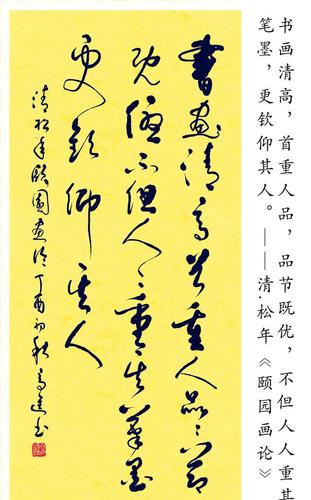 书画清高，首重人品，品节既优，不但人人重其
笔墨，更钦仰其人。——清·松年《颐园画论》
書畫清高首重人品品節
既優不但人人重其筆墨
更欽仰其人
清松年頤園畫論丁酉初秋